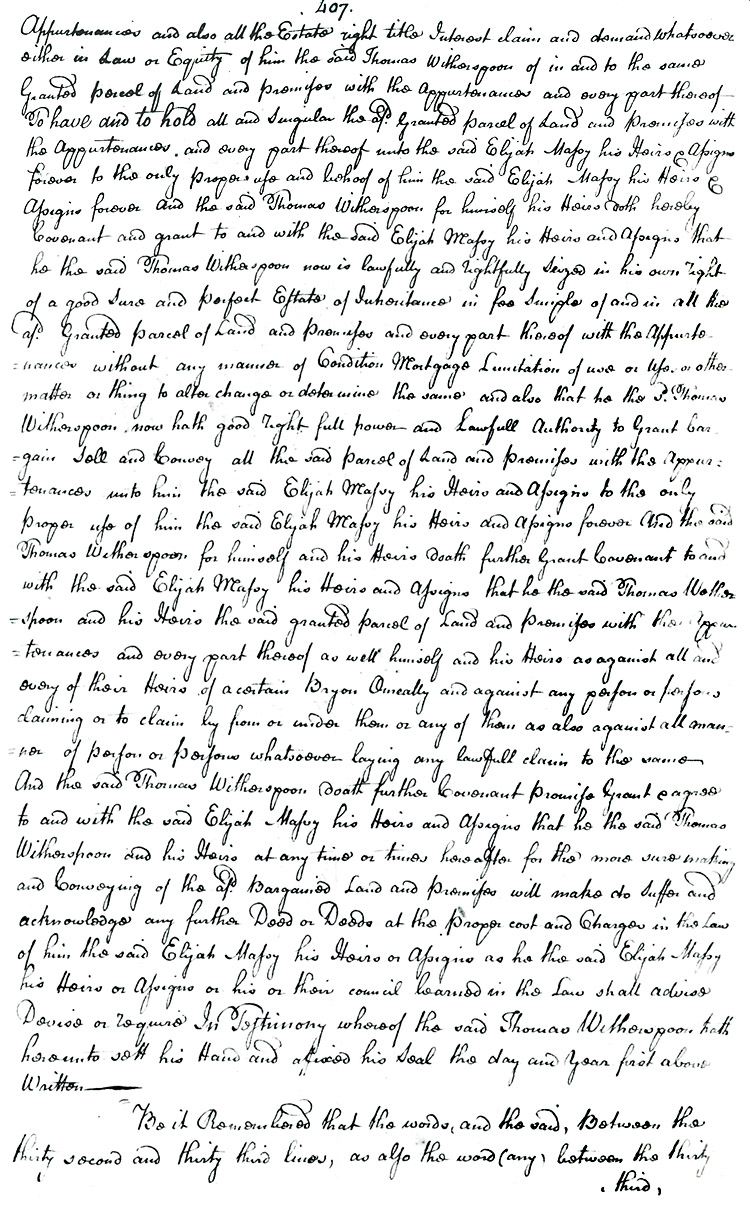 407.
Appurtenances and also all the Estate right title Interest claim and demand whatsoever
either in Law or Equity of him the said Thomas Witherspoon of in and to the same
Granted parcel of Land and Premises with the Appurtenances and every part thereof
To have and to hold all and Singular the afd. Granted Parcel of Land and Premises with
the Appurtenances, and every part thereof unto the said Elijah Massy his Heirs & Assigns
forever to the only Proper use and behoof of him the said Elijah Massy his Heirs &
Assigns forever And the said Thomas Witherspoon for himself his Heirs doth hereby
Covenant and grant to and with the said Elijah Massy his Heirs and Assigns that
he the said Thomas Witherspoon now is lawfully and rightfully Seized in his own right
of a good Sure and perfect Estate of Inheritance in fee Simple of and in all the
afd. Granted Parcel of Land and Premises and every part thereof with the Appurte-
=nances without any manner of Condition Mortgage Limitation of use or uses or other
matter or thing to alter change or determine the same and also that he the sd. Thomas
Witherspoon now hath good right full power and Lawfull Authority to Grant Bar-
=gain Sell and Convey all the said Parcel of Land and Premises with the Appur=
=tenances unto him the said Elijah Massy his Heirs and Assigns to the only
proper use of him the said Elijah Massy his Heirs and Assigns forever And the said
Thomas Witherspoon for himself and his Heirs doath further Grant Covenant to and
with the said Elijah Massy his Heirs and Assigns that he the said Thomas Wither
=spoon and his Heirs the said granted parcel of Land and Premises with the Appur
=tenances and every part thereof as well himself and his Heirs as against all and
every of their Heirs of a certain Bryon Oneally and against any person or persons
claiming or to claim by from or under them or any of them as also against all man=
=ner of person or persons whatsoever laying any lawfull claim to the same
And the said Thomas Witherspoon doath further Covenant Promise Grant & agree
to and with the said Elijah Massy his Heirs and Assigns that he the said Thomas
Witherspoon and his Heirs at any time or times hereafter for the more sure making
and Conveying of the afd. Bargained Land and Premises will make do Suffer and
acknowledge any further Deed or Deeds at the Proper cost and Charges in the Law
of him the said Elijah Massy his Heirs or Assigns as he the said Elijah Massy
his Heirs or Assigns or his or their council learned in the Law shall advise
Devise or require In Testimony whereof the said Thomas Witherspoon hath
hereunto sett his Hand and afixed his Seal the day and Year first above
Written
Be it Remembered that the words, and the said, Between the
thirty second and thirty third lines, as also the word (any) between the thirty
third,